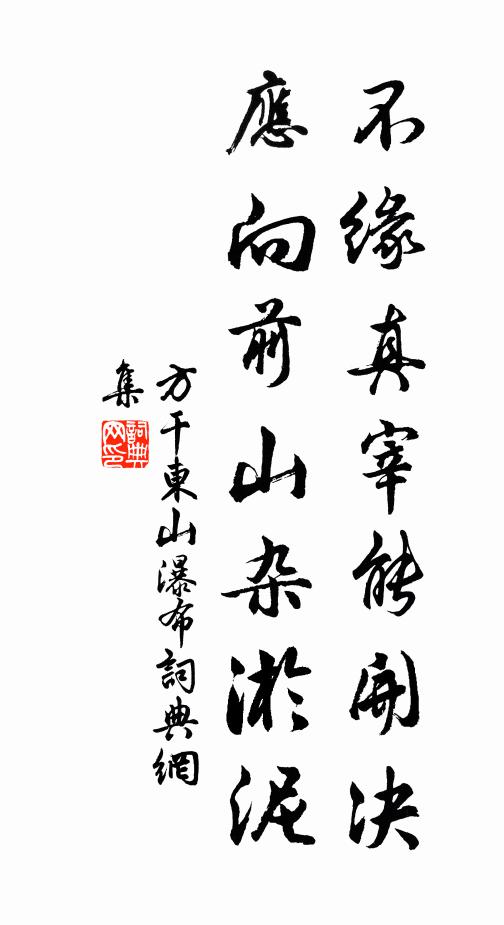 不缘真宰能開決
應向前山杂淤泥
方干東山瀑布詞典網
集
詞典網印